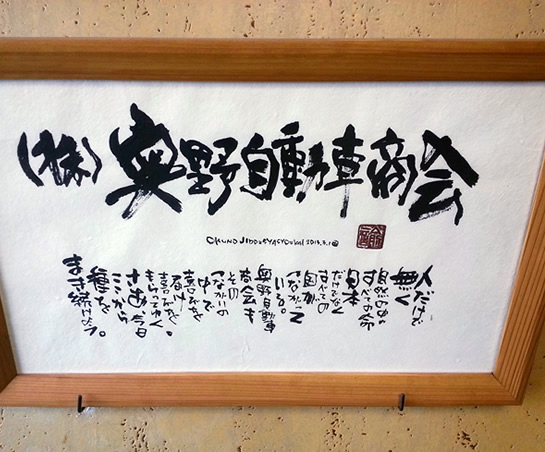 (株)奥野自動車商会
OKUNO JIDOUSYASYOUKAI
人だけで
無く
すべての命
日本
だけでなく
すべての
国が
つながって
いる。
奥野自動車
商会も
その
つながりの
中で
喜びを
届け
喜びを
もらってゆく
さあ今日
ここから
種を
まき続けよう。